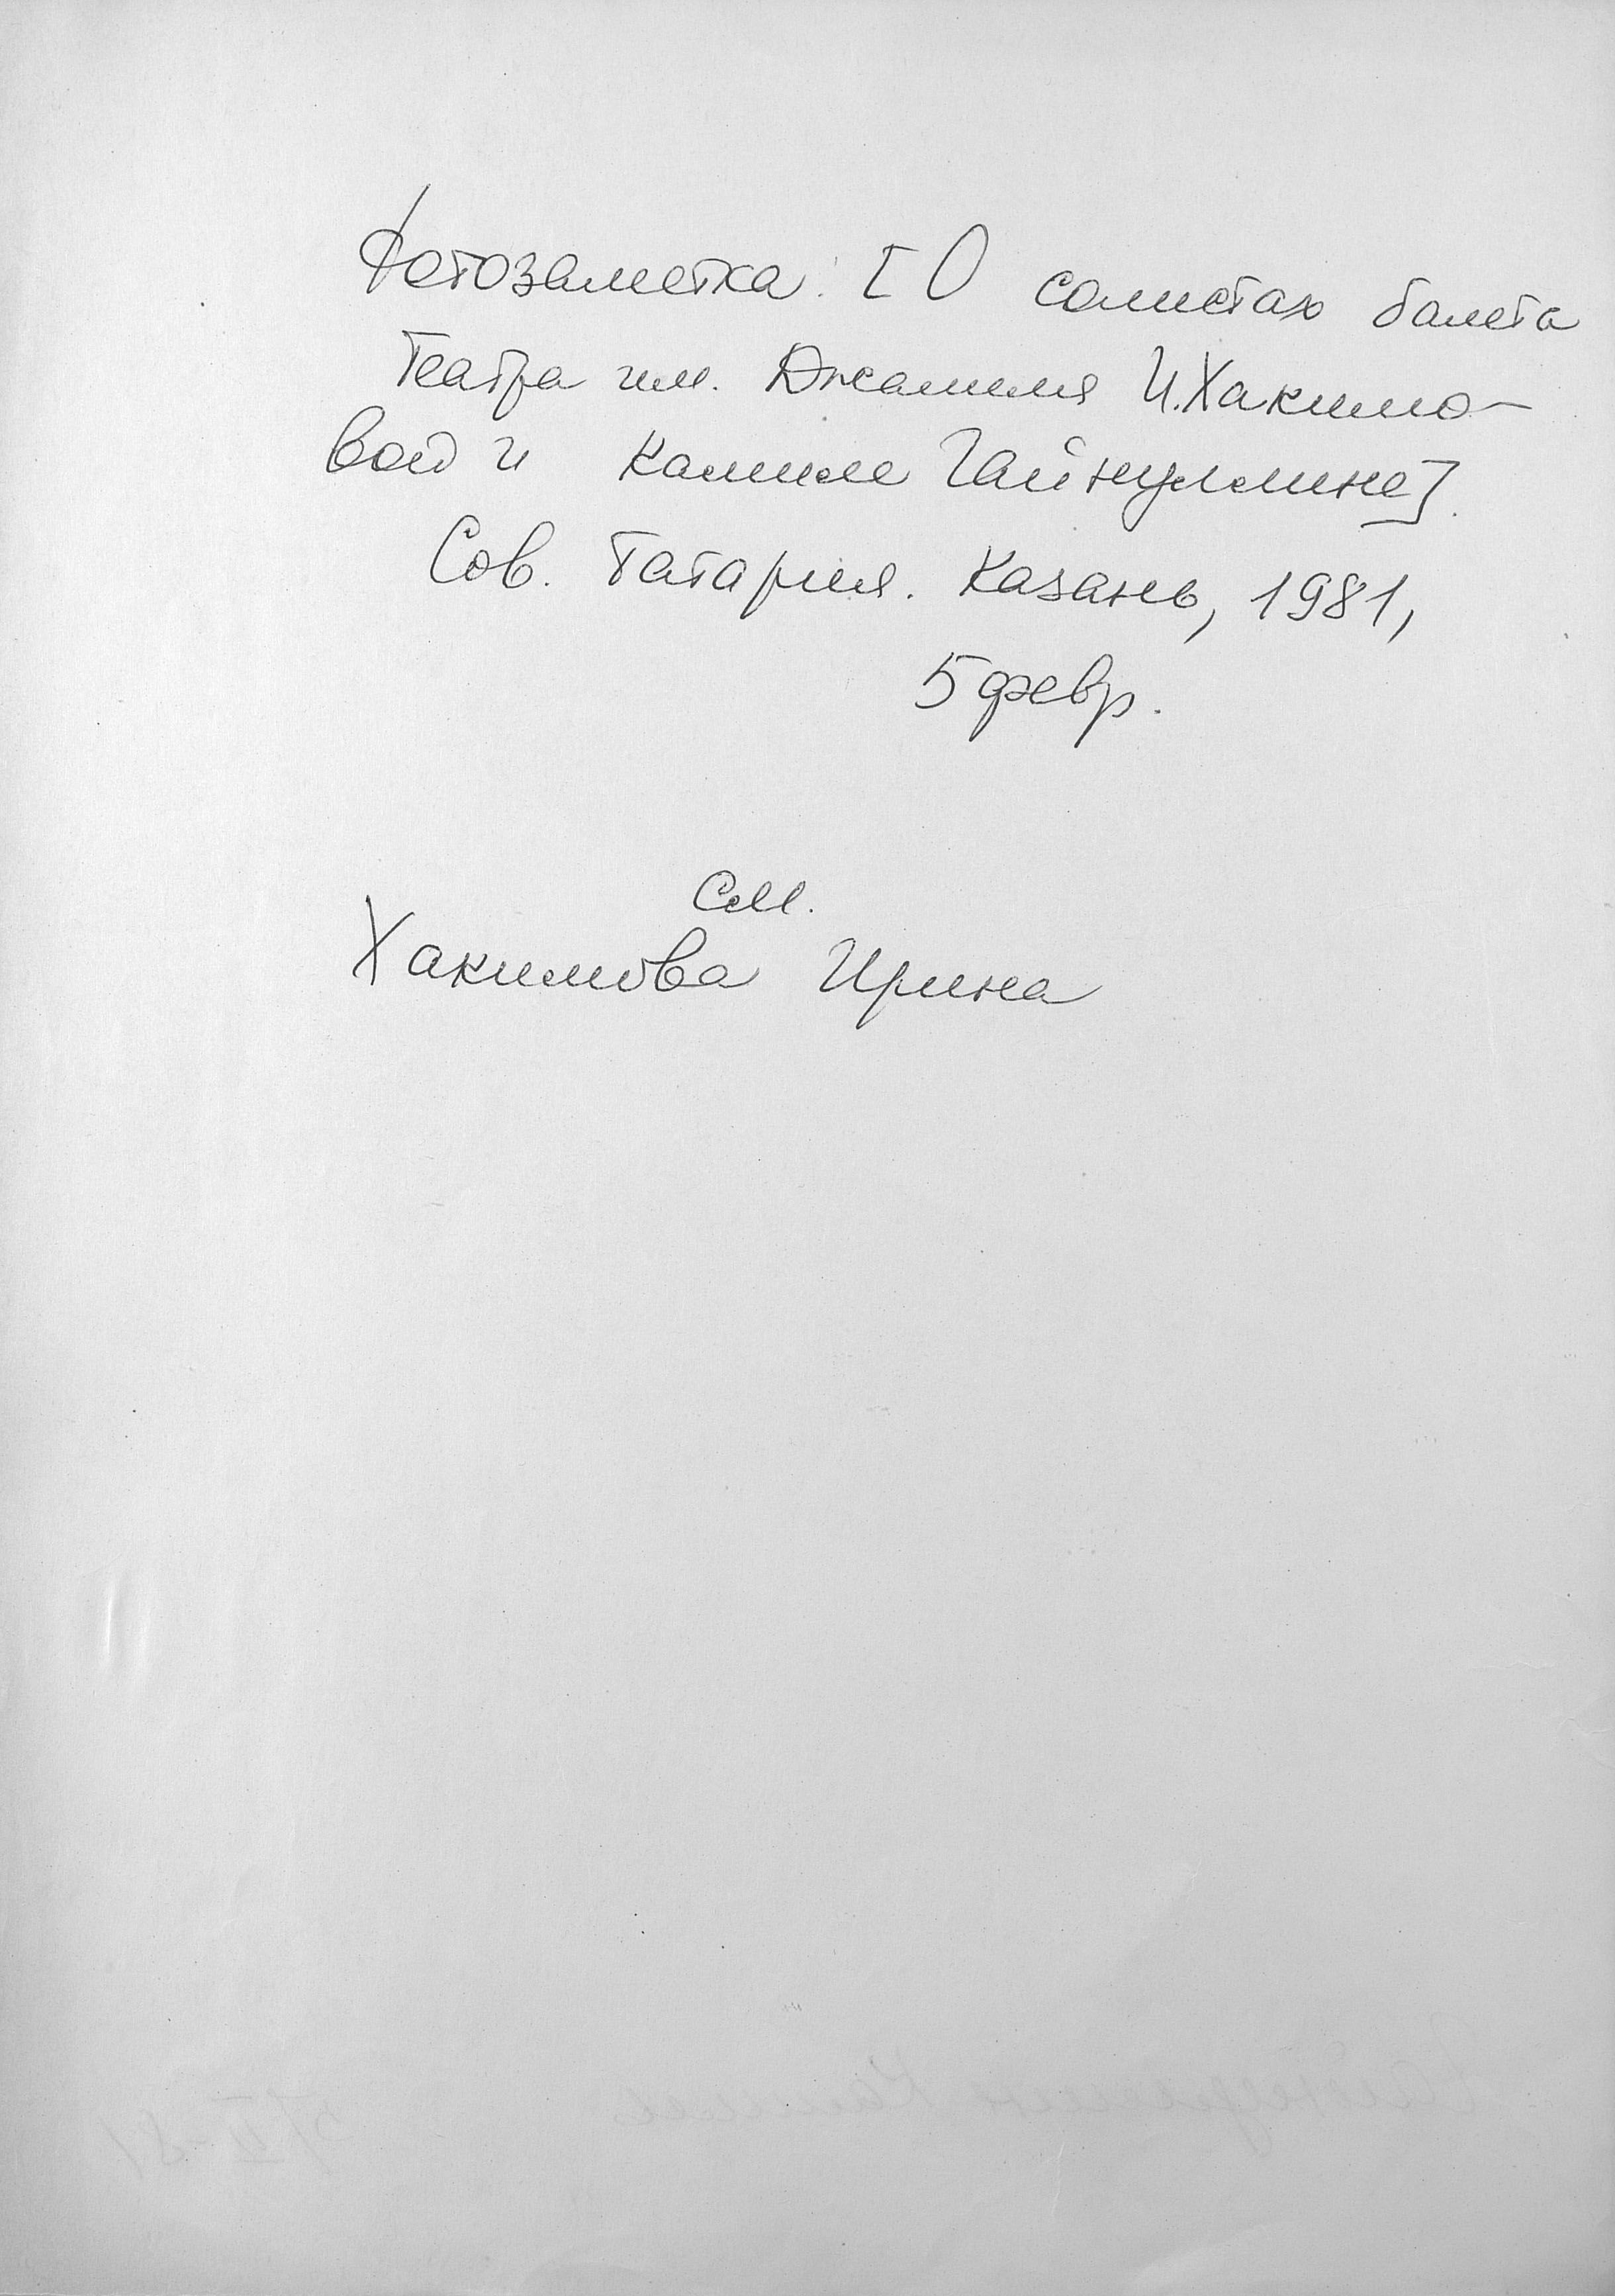 Фотозаметка. [О солистах балета
Театра им. Джалиля И.Хакимо-
вой и Камиле Гайнуллине].
Сов. Татария. Казань, 1981,
5 февр.
См.
Хакимова Ирина